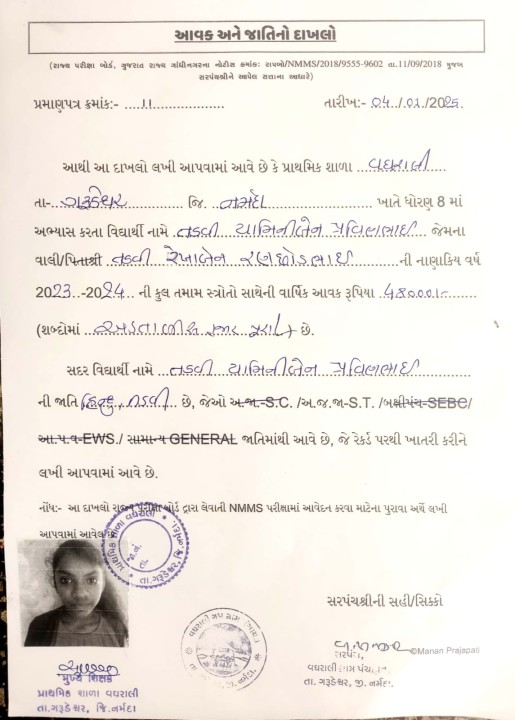 આવક અને જાતિનો દાખલો
(રાજ્ય પરીક્ષા બોર્ડ, ગુજરાત રાજ્ય ગાંધીનગરના નોટીસ ક્રમાંક: રાપબો/NMMS/2018/9555-9602 તા.11/09/2018 મુજબ
સરપંચશ્રીને આપેલ સત્તાના આધારે)
પ્રમાણપત્ર ક્રમાંક:- ....11.................... તારીખ:- 04./01./2025
આથી આ દાખલો લખી આપવામાં આવે છે કે પ્રાથમિક શાળા ..વઘરાલી
તા-...ગરૂડેશ્વર............... જિ. ..નર્મદા........................ ખાતે ધોરણ 8 માં
અભ્યાસ કરતા વિદ્યાર્થી નામે ..તડવી યામિનીબેન પ્રવિણભાઈ.. જેમના
વાલી/પિતાશ્રી ..તડવી રેખાબેન રણછોડભાઈ............ની નાણાકિય વર્ષ
2023..-2024.. ની કુલ તમામ સ્ત્રોતો સાથેની વાર્ષિક આવક રૂપિયા .48000/-......
(શબ્દોમાં ..અડતાળીસ હજાર પુરા/.. છે.
સદર વિદ્યાર્થી નામે ...તડવી યામિનીબેન પ્રવિણભાઈ
ની જાતિ હિન્દુ, તડવી .. છે, જેઓ અ.જા.-S.C. /અ.જ.જા-S.T. /બક્ષીપંચ-SEBC/
આ.પ.વ-EWS./ સામાન્ય GENERAL જાતિમાંથી આવે છે, જે રેકર્ડ પરથી ખાતરી કરીને
લખી આપવામાં આવે છે.
નોંધ:- આ દાખલો રાજ્ય પરીક્ષા બોર્ડ દ્વારા લેવાતી NMMS પરીક્ષામાં આવેદન કરવા માટેના પુરાવા અર્થે લખી
આપવામાં આવેલ છે.
પ્રાથમિક શાળા વઘરાલી
તા.ગરૂડેશ્વર, જિ.નર્મદા
સરપંચશ્રીની સહી/સિક્કો
©Manan Prajapati
મુખ્ય શિક્ષક
પ્રાથમિક શાળા વઘરાલી
તા.ગરૂડેશ્વર, જિ.નર્મદા
સરપંચ,
વઘરાલી ગ્રામ પંચાયત
તા. ગરૂડેશ્વર, જી. નર્મદા.